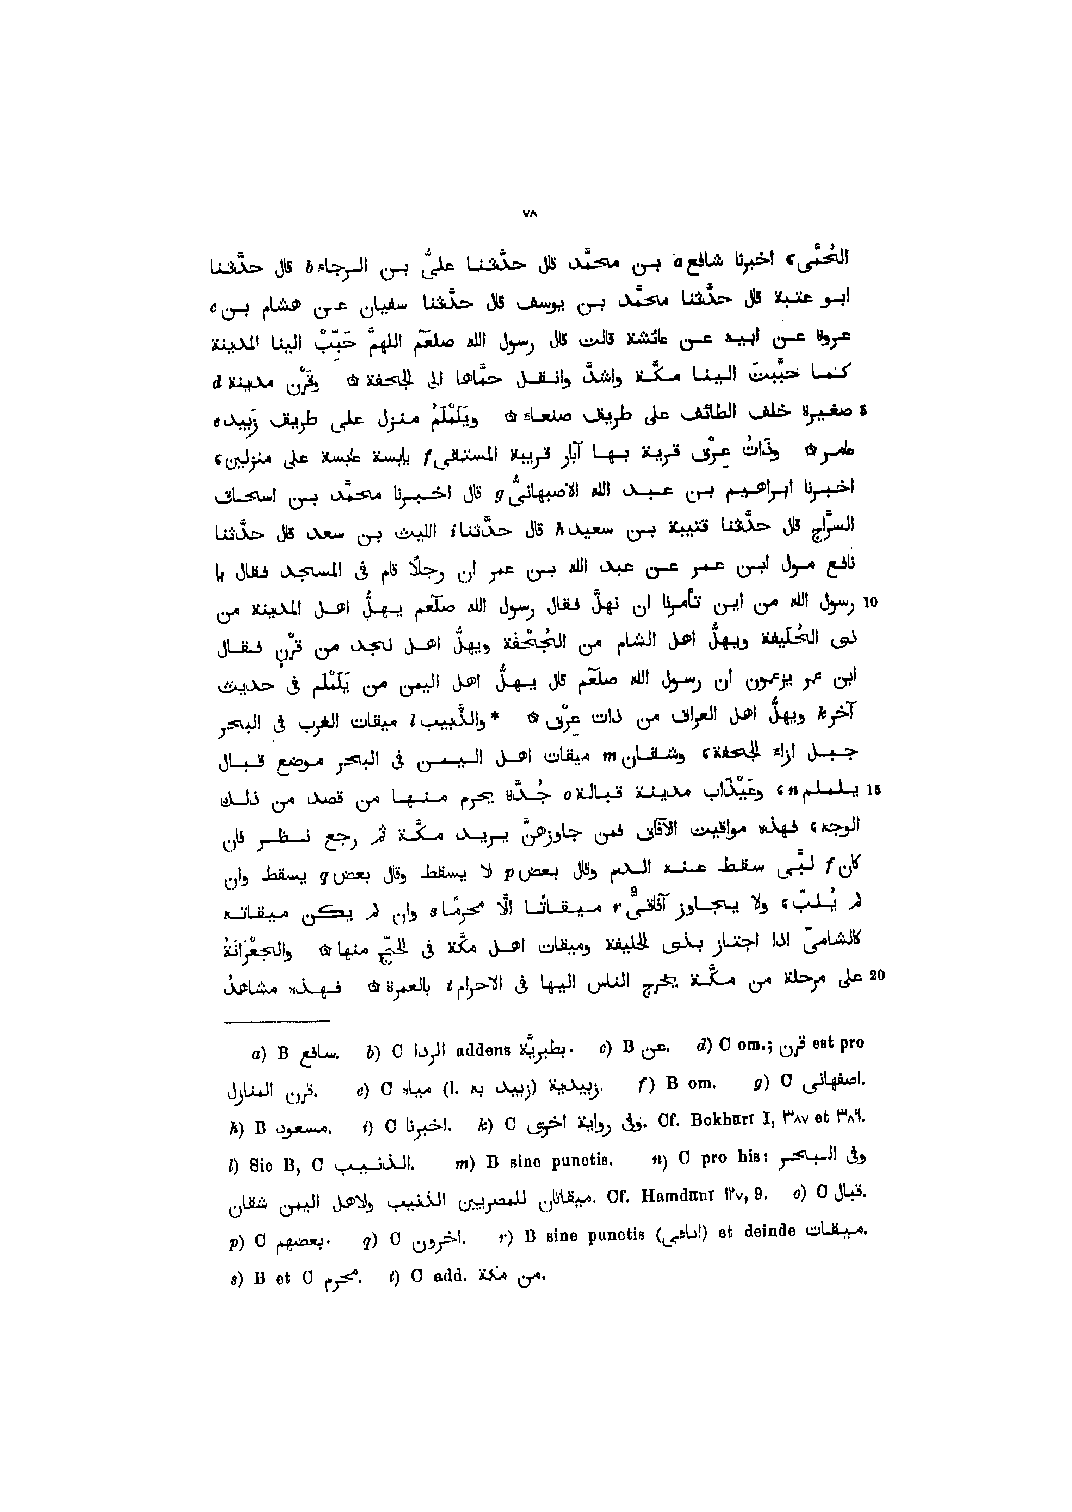 ٧٨
الحُمَّى، اخبرنا شافع a بن محمَّد قال حدَّثنا علىُّ بن الرجاء b قال حدَّثنا
ابو عتبة قال حدَّثنا محمَّد بن يوسف قال حدَّثنا سفيان عن هشام بن c
عروة عن ابيه عن عائشة قالت قال رسول الله صلعّم اللهمَّ حَبِّبْ الينا المدينة
كما حبَّبتَ الينا مكّة واشدَّ وانقل حمَّاها الى الجحفة ۞ وقَرْن مدينة d
5 صغيرة خلف الطائف على طريق صنعاء ۞ ويَلَمْلَمُ منزل على طريق زَبِيد e
عامر ۞ وذَاتُ عِرْق قرية بها آبار قريبة المستقى f يابسة عابسة على منزلين،
اخبرنا ابراهيم بن عبد الله الاصبهانىُّ g قال اخبرنا محمَّد بن اسحاق
السرَّاج قال حدَّثنا قتيبة بن سعيد h قال حدَّثنا i الليث بن سعد قال حدَّثنا
نافع مولى ابن عمر عن عبد الله بن عمر ان رجلًا قام فى المسجد فقال يا
10 رسول الله من اين تأمرنا ان نهلَّ فقال رسول الله صلعّم يهلُّ اهل المدينة من
ذى الحُلَيفة ويهلُّ اهل الشام من الجُحْفَة ويهلُّ اهل نجد من قَرْنٍ فقال
ابن عمر يزعمون ان رسول الله صلعّم قال يهلُّ اهل اليمن من يَلَمْلَم فى حديث
آخر k ويهلُّ اهل العراق من ذات عِرْق ۞ *والذَّبيب l ميقات الغرب فى البحر
جبل ازاء الجحفة، وشقان m ميقات اهل اليمن فى البحر موضع قبال
15 يلملم n، وعَيْذَاب مدينة قبالة o جُدَّة يحرم منها من قصد من ذلك
الوجه، فهذه مواقيت الآفاق فمن جاوزهنَّ يريد مكّة ثم رجع نظر فان
كان f لبَّى سقط عنه الدم وقال بعض p لا يسقط وقال بعض q يسقط وان
لم يُلَبّ، ولا يتجاوز آفاقىٌّ r ميقاتًا الَّا محرمًا s وان لم يكن ميقاته
كالشامىّ اذا اجتاز بذى الحليفة وميقات اهل مكّة فى الحجّ منها ۞ والجِعْرَانَةُ
20 على مرحلة من مكَّة يخرج الناس اليها فى الاحرام t بالعمرة ۞ فهذه مشاعدُ
a) B سافع. b) C الردا addens بطبريَّة. c) B عن. d) C om.; قرن est pro
قرن المنازل. e) C مياه (l. زبيد به) زبيدية. f) B om. g) C اصفهانى.
h) B مسعود. i) C اخبرنا. k) C وفى رواية اخرى. Cf. Bokhârî I, ٣٨٧ et ٣٨٩.
l) Sic B, C الذنيب. m) B sine punctis. n) C pro his: وفى البحر
ميقاتان للمصريين الذنيب ولاهل اليمن شقان. Cf. Hamdânî ١٢٧, 9. o) C قبال.
p) C بعضهم. q) C اخرون. r) B sine punctis et deinde ميقات.
s) B et C محرم. t) C add. من مكة.